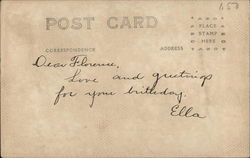 150
POST CARD
PLACE
STAMP
HERE
CORRESPONDENCE
ADDRESS
Dear Florence,
Love and greetings
for your birthday.
Ella